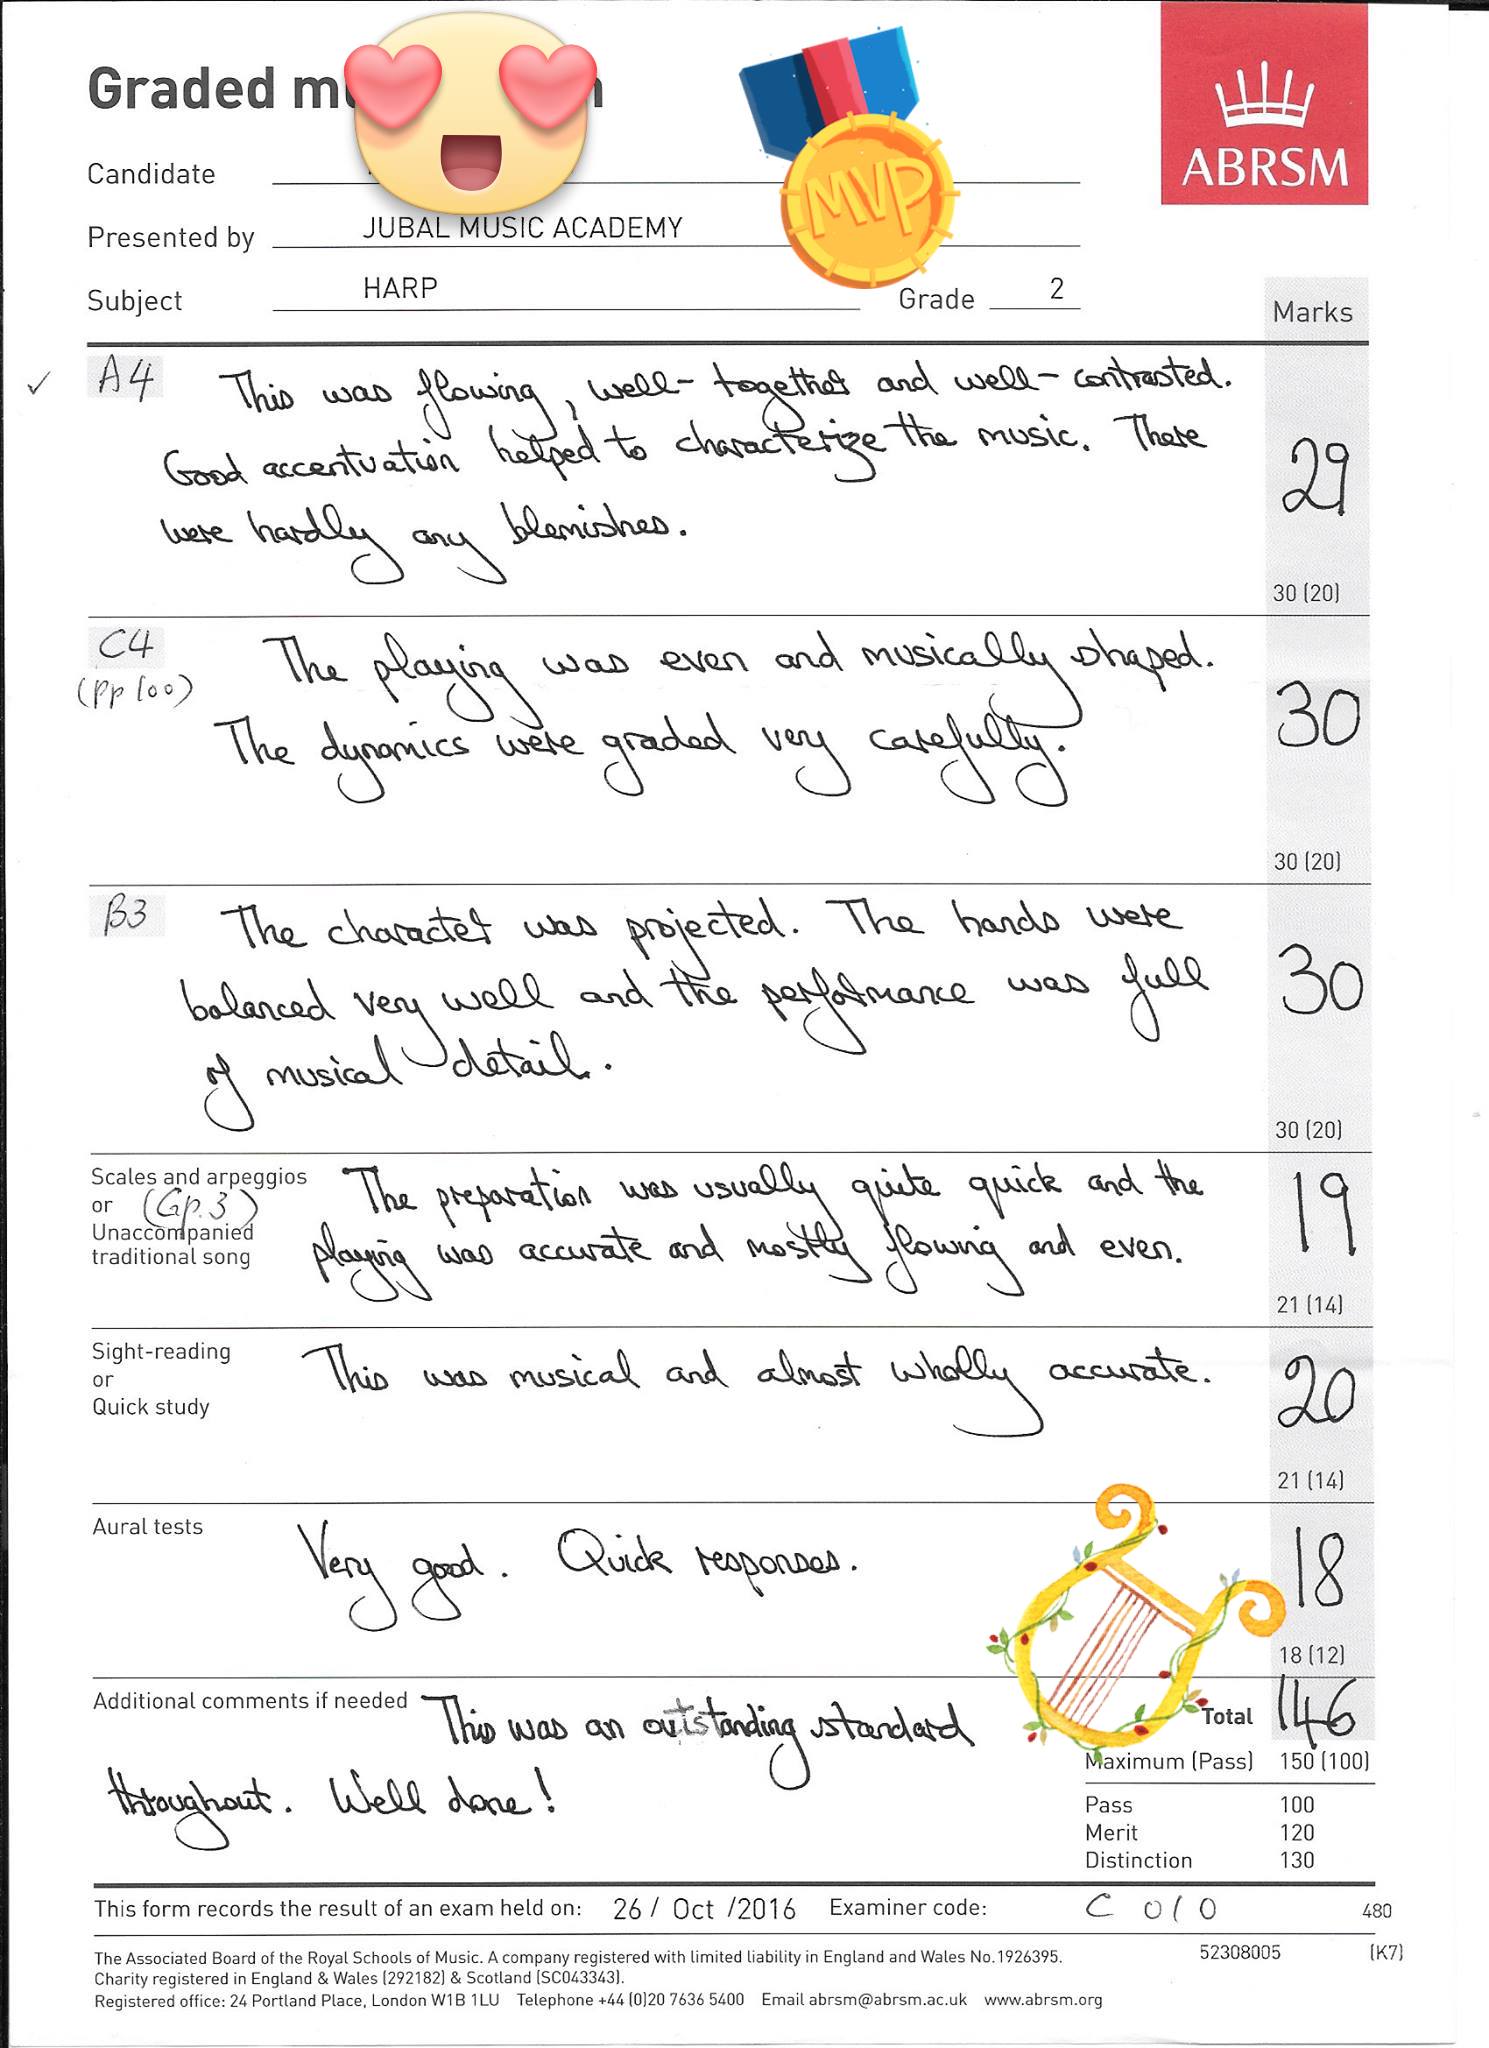 Graded mu
ABRSM
Candidate
MVP
Presented by JUBAL MUSIC ACADEMY
Subject HARP Grade 2
Marks
✓ A4 This was flowing, well-together and well-contrasted.
Good accentuation helped to characterize the music. There
were hardly any blemishes.
29
30 (20)
C4 The playing was even and musically shaped.
(pp 100)
The dynamics were graded very carefully.
30
30 (20)
B3 The character was projected. The hands were
balanced very well and the performance was full
of musical detail.
30
30 (20)
Scales and arpeggios
or (Gp.3)
Unaccompanied
traditional song
The preparation was usually quite quick and the
playing was accurate and mostly flowing and even.
19
21 (14)
Sight-reading
or
Quick study
This was musical and almost wholly accurate.
20
21 (14)
Aural tests
Very good. Quick responses.
18
18 (12)
Additional comments if needed This was an outstanding standard
throughout. Well done!
Total 146
Maximum (Pass) 150 (100)
Pass 100
Merit 120
Distinction 130
This form records the result of an exam held on: 26 / Oct /2016 Examiner code: C 010 480
The Associated Board of the Royal Schools of Music. A company registered with limited liability in England and Wales No.1926395. 52308005 (K7)
Charity registered in England & Wales (292182) & Scotland (SC043343).
Registered office: 24 Portland Place, London W1B 1LU Telephone +44 (0)20 7636 5400 Email abrsm@abrsm.ac.uk www.abrsm.org